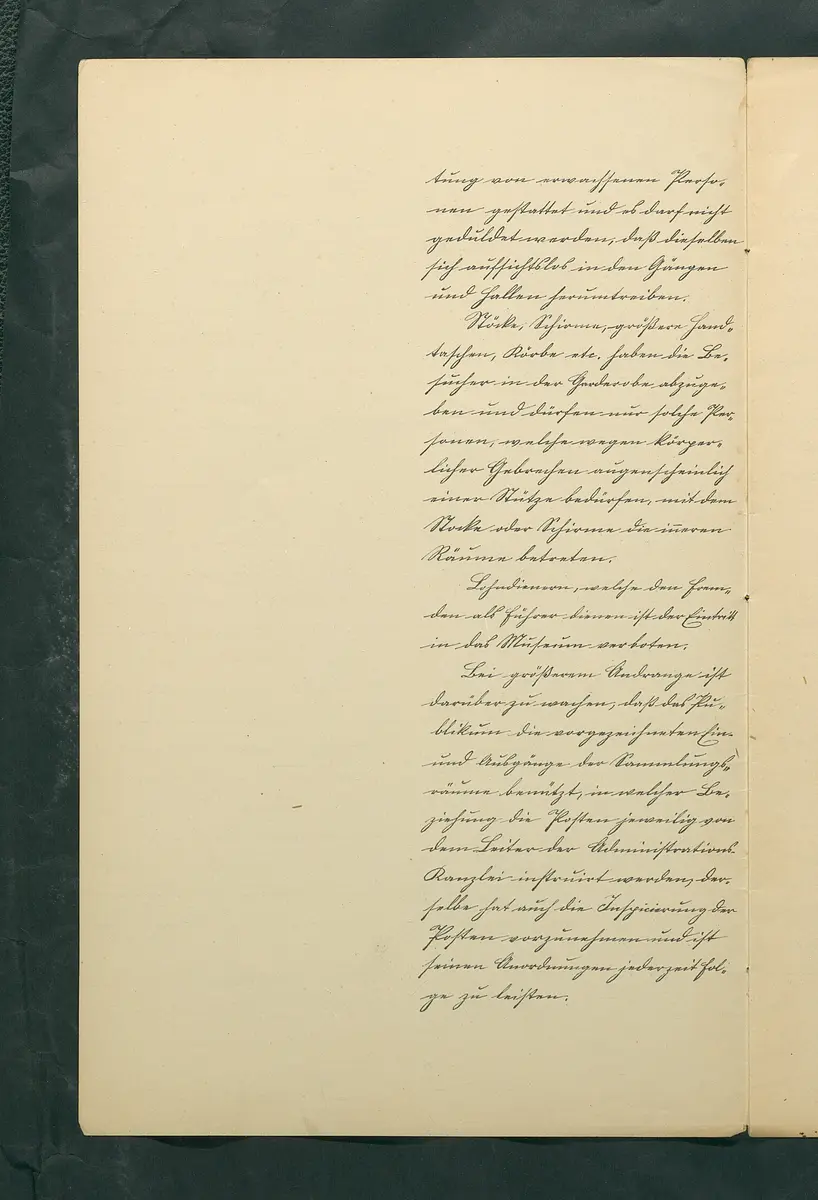 tung von erwachsenen Perso-
nen gestattet und es darf nicht
geduldet werden, daß dieselben
sich aufsichtslos in den Gängen
und Hallen herumtreiben.
Stöcke, Schirme, größere Hand-
taschen, Körbe etc. haben die Be-
sucher in der Garderobe abzuge-
ben und dürfen nur solche Per-
sonen, welche wegen körper-
licher Gebrechen augenscheinlich
einer Stütze bedürfen, mit dem
Stocke oder Schirme die inneren
Räume betreten.
Lohndienern, welche den Frem-
den als Führer dienen ist der Eintritt
in das Museum verboten.
Bei größerem Andrange ist
darüber zu wachen, daß das Pu-
blikum die vorgezeichneten Ein-
und Ausgänge der Sammlungs-
räume benützt, in welcher Be-
ziehung die Posten jeweilig von
dem Leiter der Administrations-
Kanzlei instruirt werden, der-
selbe hat auch die Inspicierung der
Posten vorzunehmen und ist
seinen Anordnungen jederzeit Fol-
ge zu leisten.